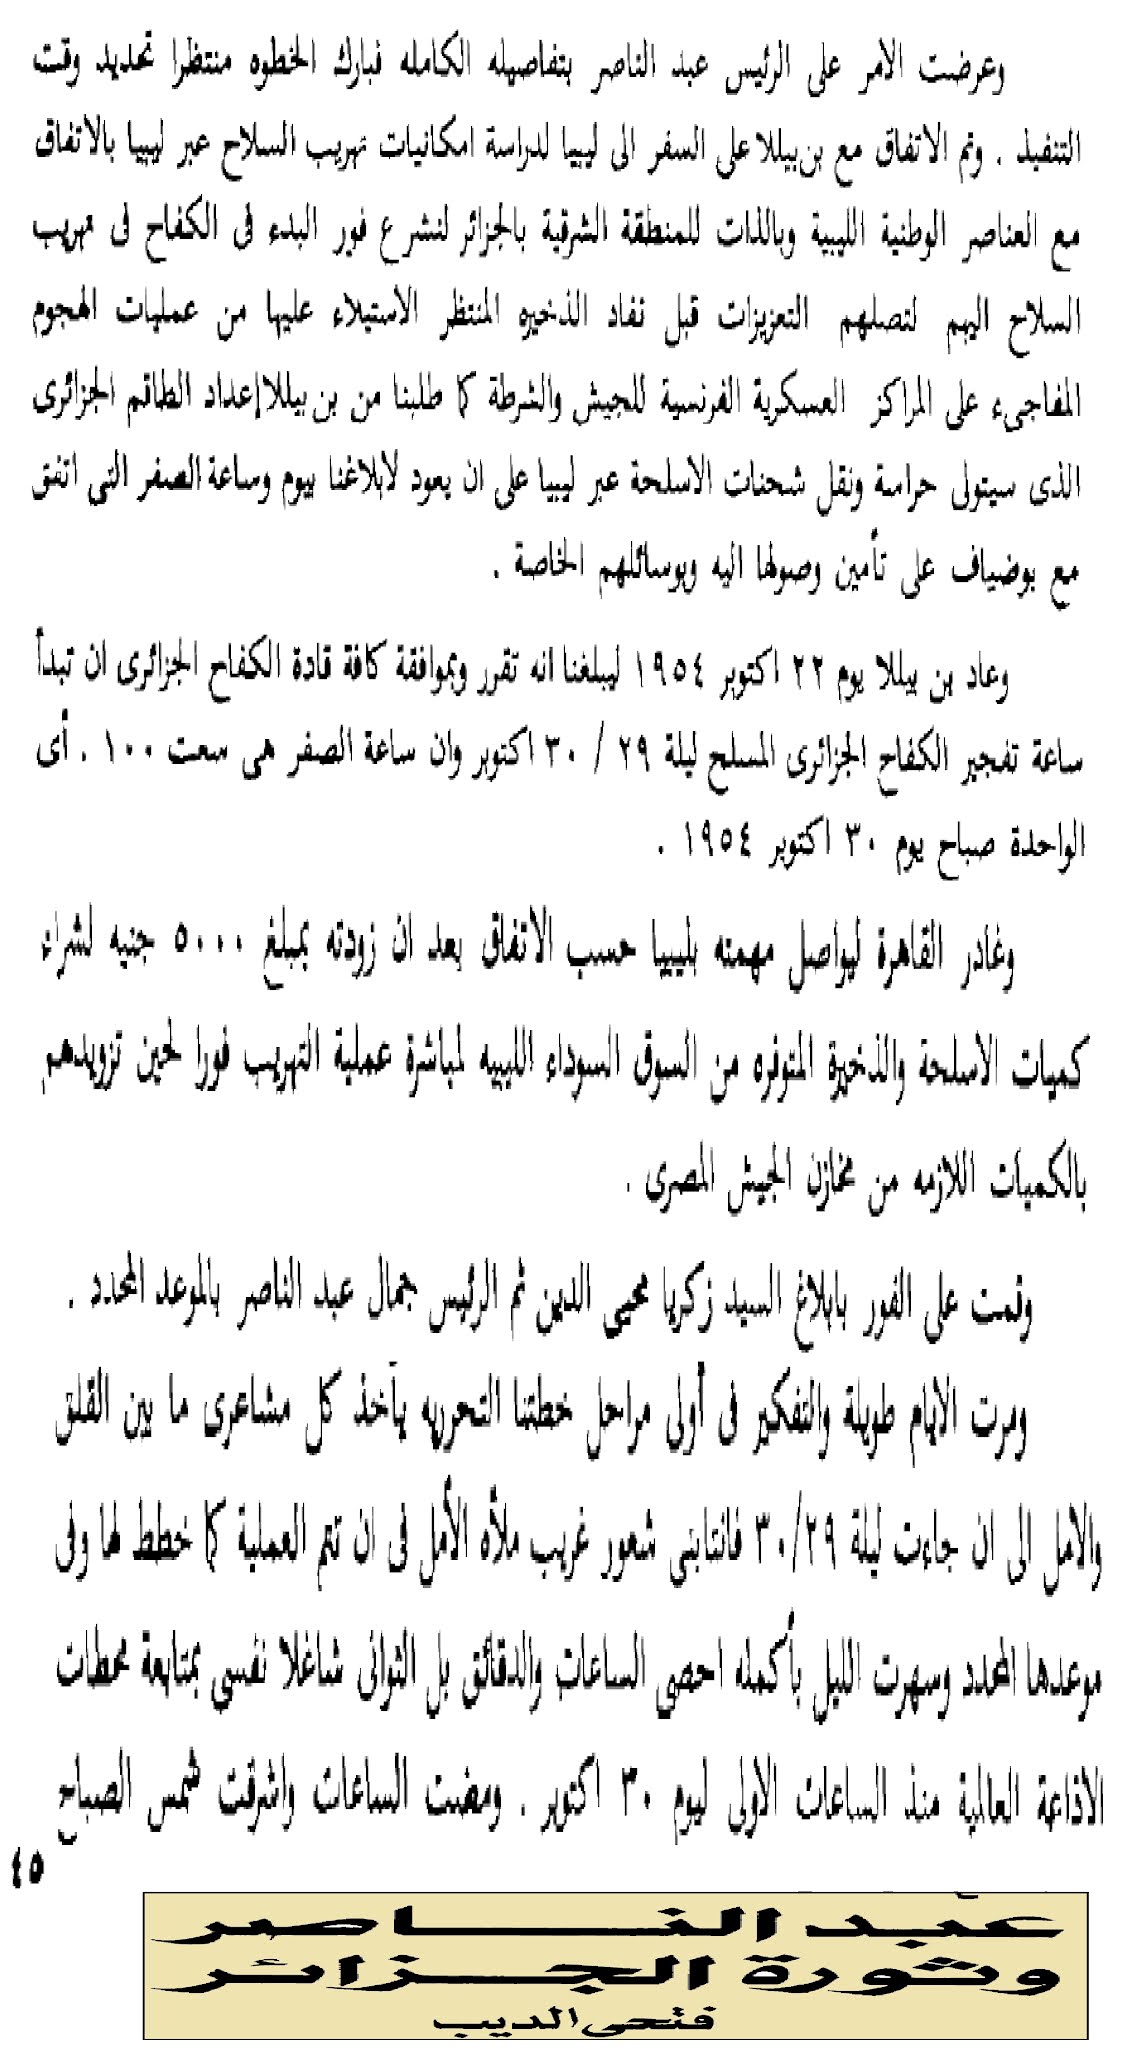 وعرضت الامر على الرئيس عبد الناصر بتفاصيله الكامله فبارك الخطوه منتظرا تحديد وقت
التنفيذ . وتم الاتفاق مع بن بيللا على السفر الى ليبيا لدراسة امكانيات تهريب السلاح عبر ليبيا بالاتفاق
مع العناصر الوطنية الليبية وبالذات للمنطقة الشرقية بالجزائر لنشرع فور البدء فى الكفاح فى تهريب
السلاح اليهم لتصلهم التعزيزات قبل نفاد الذخيره المنتظر الاستيلاء عليها من عمليات الهجوم
المفاجىء على المراكز العسكرية الفرنسية للجيش والشرطة كما طلبنا من بن بيللا إعداد الطاقم الجزائرى
الذى سيتولى حراسة ونقل شحنات الاسلحة عبر ليبيا على ان يعود لابلاغنا بيوم وساعة الصفر التى اتفق
مع بوضياف على تأمين وصولها اليه وبوسائلهم الخاصة .
وعاد بن بيللا يوم ٢٢ اكتوبر ١٩٥٤ ليبلغنا انه تقرر وبموافقة كافة قادة الكفاح الجزائرى ان تبدأ
ساعة تفجير الكفاح الجزائرى المسلح ليلة ٢٩ / ٣٠ اكتوبر وان ساعة الصفر هى سعت ١٠٠ . أى
الواحدة صباح يوم ٣٠ اكتوبر ١٩٥٤ .
وغادر القاهرة ليواصل مهمته بليبيا حسب الاتفاق بعد ان زودته بمبلغ ٥٠٠٠ جنيه لشراء
كميات الاسلحة والذخيرة المتوفره من السوق السوداء الليبيه لمباشرة عملية التهريب فورا لحين تزويدهم
بالكميات اللازمه من مخازن الجيش المصرى .
وقمت على الفور بابلاغ السيد زكريا محيى الدين ثم الرئيس جمال عبد الناصر بالموعد المحدد .
ومرت الايام طويلة والتفكير فى أولى مراحل خطتنا التحرريه يأخذ كل مشاعرى ما بين القلق
والامل الى ان جاءت ليلة ٣٠/٢٩ فانتابنى شعور غريب ملأه الأمل فى ان تتم العملية كما خطط لها وفى
موعدها المحدد وسهرت الليل بأكمله احصى الساعات والدقائق بل الثوانى شاغلا نفسي بمتابعة محطات
الاذاعة العالمية منذ الساعات الاولى ليوم ٣٠ اكتوبر . ومضت الساعات واشرقت شمس الصباح
٤٥
عبد الناصر
وثورة الجزائر
فتحى الديب